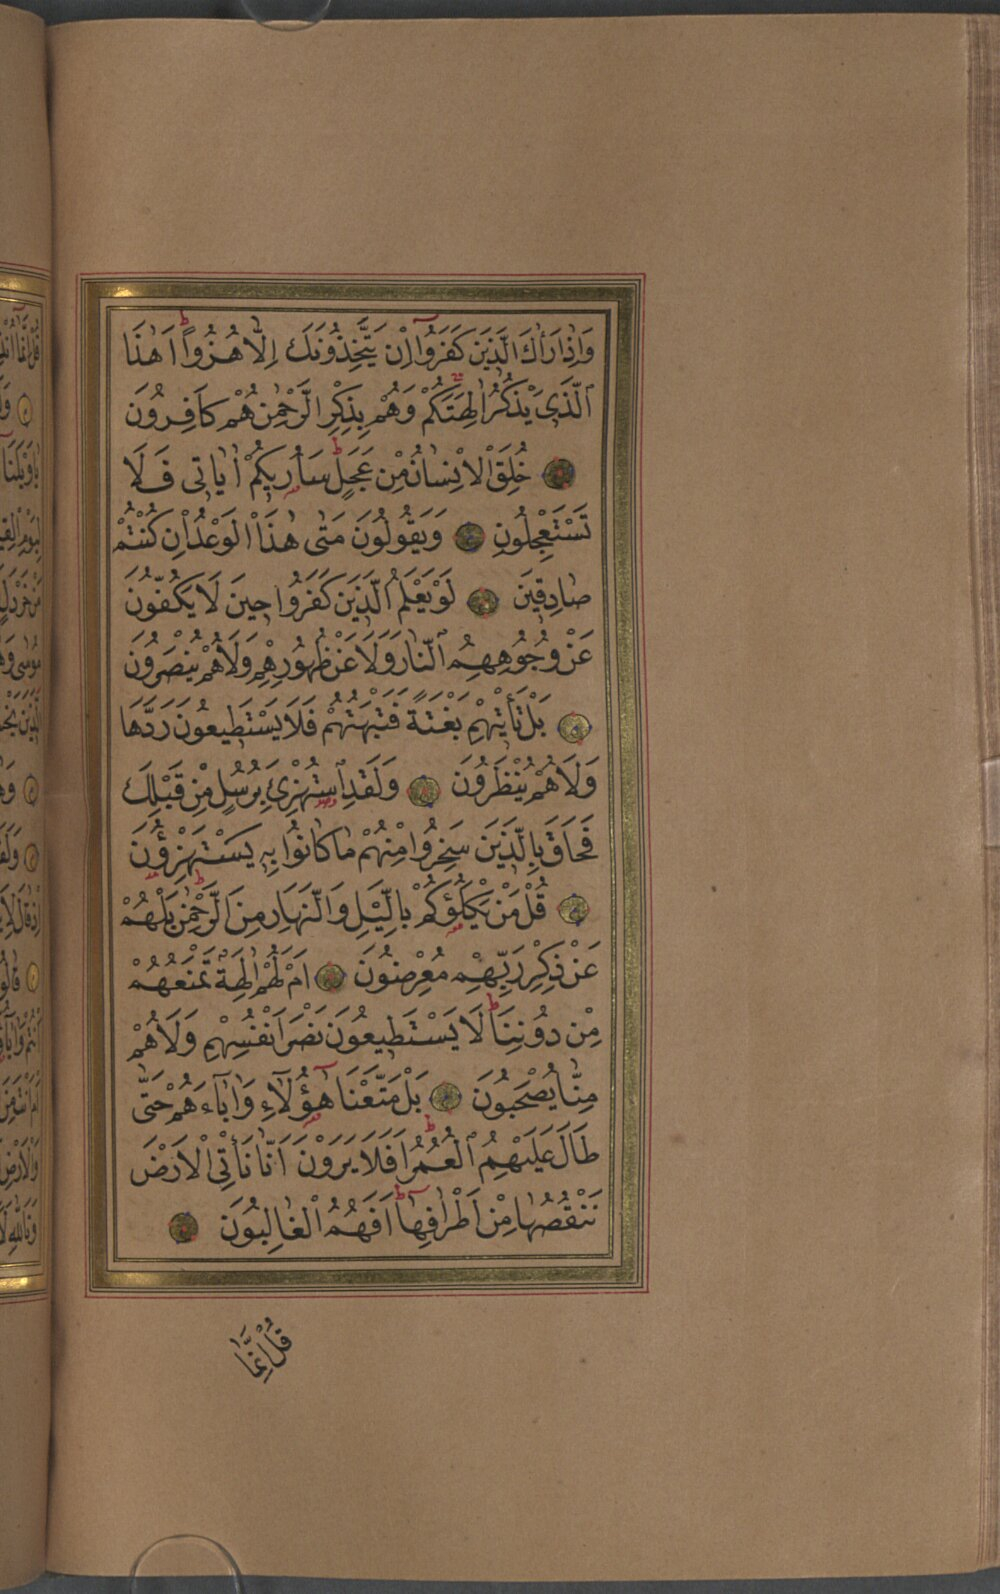 وَاِذَا رَاٰكَ الَّذ۪ينَ كَفَرُٓوا اِنْ يَتَّخِذُونَكَ اِلَّا هُزُوًاۜ اَهٰذَا
الَّذ۪ي يَذْكُرُ اٰلِهَتَكُمْۚ وَهُمْ بِذِكْرِ الرَّحْمٰنِ هُمْ كَافِرُونَ
خُلِقَ الْاِنْسَانُ مِنْ عَجَلٍۜ سَاُر۪يكُمْ اٰيَات۪ي فَلَا
تَسْتَعْجِلُونِ وَيَقُولُونَ مَتٰى هٰذَا الْوَعْدُ اِنْ كُنْتُمْ
صَادِق۪ينَ لَوْ يَعْلَمُ الَّذ۪ينَ كَفَرُوا ح۪ينَ لَا يَكُفُّونَ
عَنْ وُجُوهِهِمُ النَّارَ وَلَا عَنْ ظُهُورِهِمْ وَلَا هُمْ يُنْصَرُونَ
بَلْ تَأْت۪يهِمْ بَغْتَةً فَتَبْهَتُهُمْ فَلَا يَسْتَط۪يعُونَ رَدَّهَا
وَلَا هُمْ يُنْظَرُونَ وَلَقَدِ اسْتُهْزِئَ بِرُسُلٍ مِنْ قَبْلِكَ
فَحَاقَ بِالَّذ۪ينَ سَخِرُوا مِنْهُمْ مَا كَانُوا بِه۪ يَسْتَهْزِؤُنَ
قُلْ مَنْ يَكْلَؤُكُمْ بِالَّيْلِ وَالنَّهَارِ مِنَ الرَّحْمٰنِۜ بَلْ هُمْ
عَنْ ذِكْرِ رَبِّهِمْ مُعْرِضُونَ اَمْ لَهُمْ اٰلِهَةٌ تَمْنَعُهُمْ
مِنْ دُونِنَاۜ لَا يَسْتَط۪يعُونَ نَصْرَ اَنْفُسِهِمْ وَلَا هُمْ
مِنَّا يُصْحَبُونَ بَلْ مَتَّعْنَا هٰٓؤُ۬لَٓاءِ وَاٰبَٓاءَهُمْ حَتّٰى
طَالَ عَلَيْهِمُ الْعُمُرُۜ اَفَلَا يَرَوْنَ اَنَّا نَأْتِي الْاَرْضَ
نَنْقُصُهَا مِنْ اَطْرَافِهَاۜ اَفَهُمُ الْغَالِبُونَ
قُلْ اِنَّمَٓا